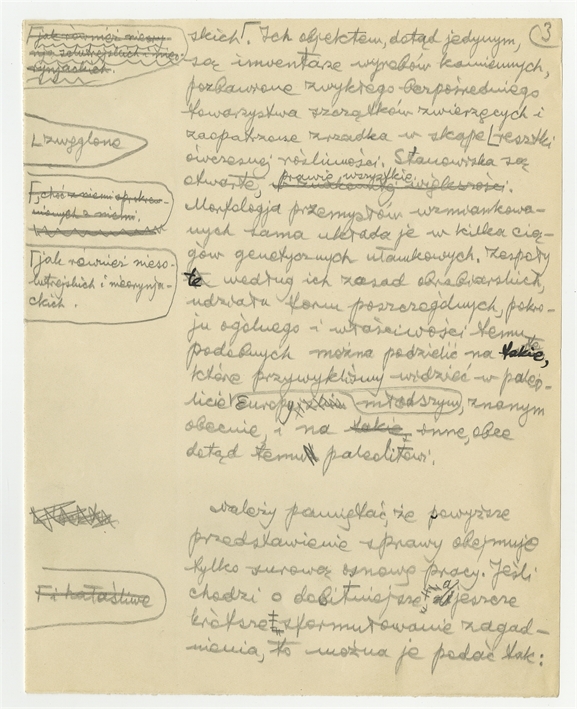 3
skich⌈. Ich objektem, dotąd jedynym,
są inwentarze wyrobów kamiennych,
pozbawione zwykłego bezpośredniego
towarzystwa szczątków zwierzęcych i
zaopatrzone zrzadka w skąpe ⌊resztki
ówczesnej roślinności. Stanowiska są
otwarte, prawie wszystkie.
Morfologja przemysłów wzmiankowa-
nych sama układa je w kilka cią-
gów genetycznych ułamkowych. Zespoły
te według ich zasad obrabiarskich,
udziału form poszczególnych, pokro-
ju ogólnego i właściwości temu
podobnych można podzielić na takie,
które przywykliśmy widzieć w paleo-
licie Europy młodszym, znanym
obecnie, i na inne, obce
dotąd temu paleolitowi.
Należy pamiętać, że powyższe
przedstawienie sprawy obejmuje
tylko surową osnowę pracy. Jeśli
chodzi o dobitniejsze a jeszcze
krótsze sformułowanie zagad-
nienia, to można je podać tak:
⌈jak również niesо-
lutrejskich i nieorynja-
ckich.
⌊zwęglone